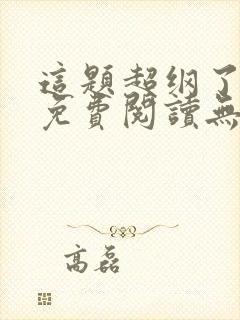 這題超纲了
免費閱讀無
高磊